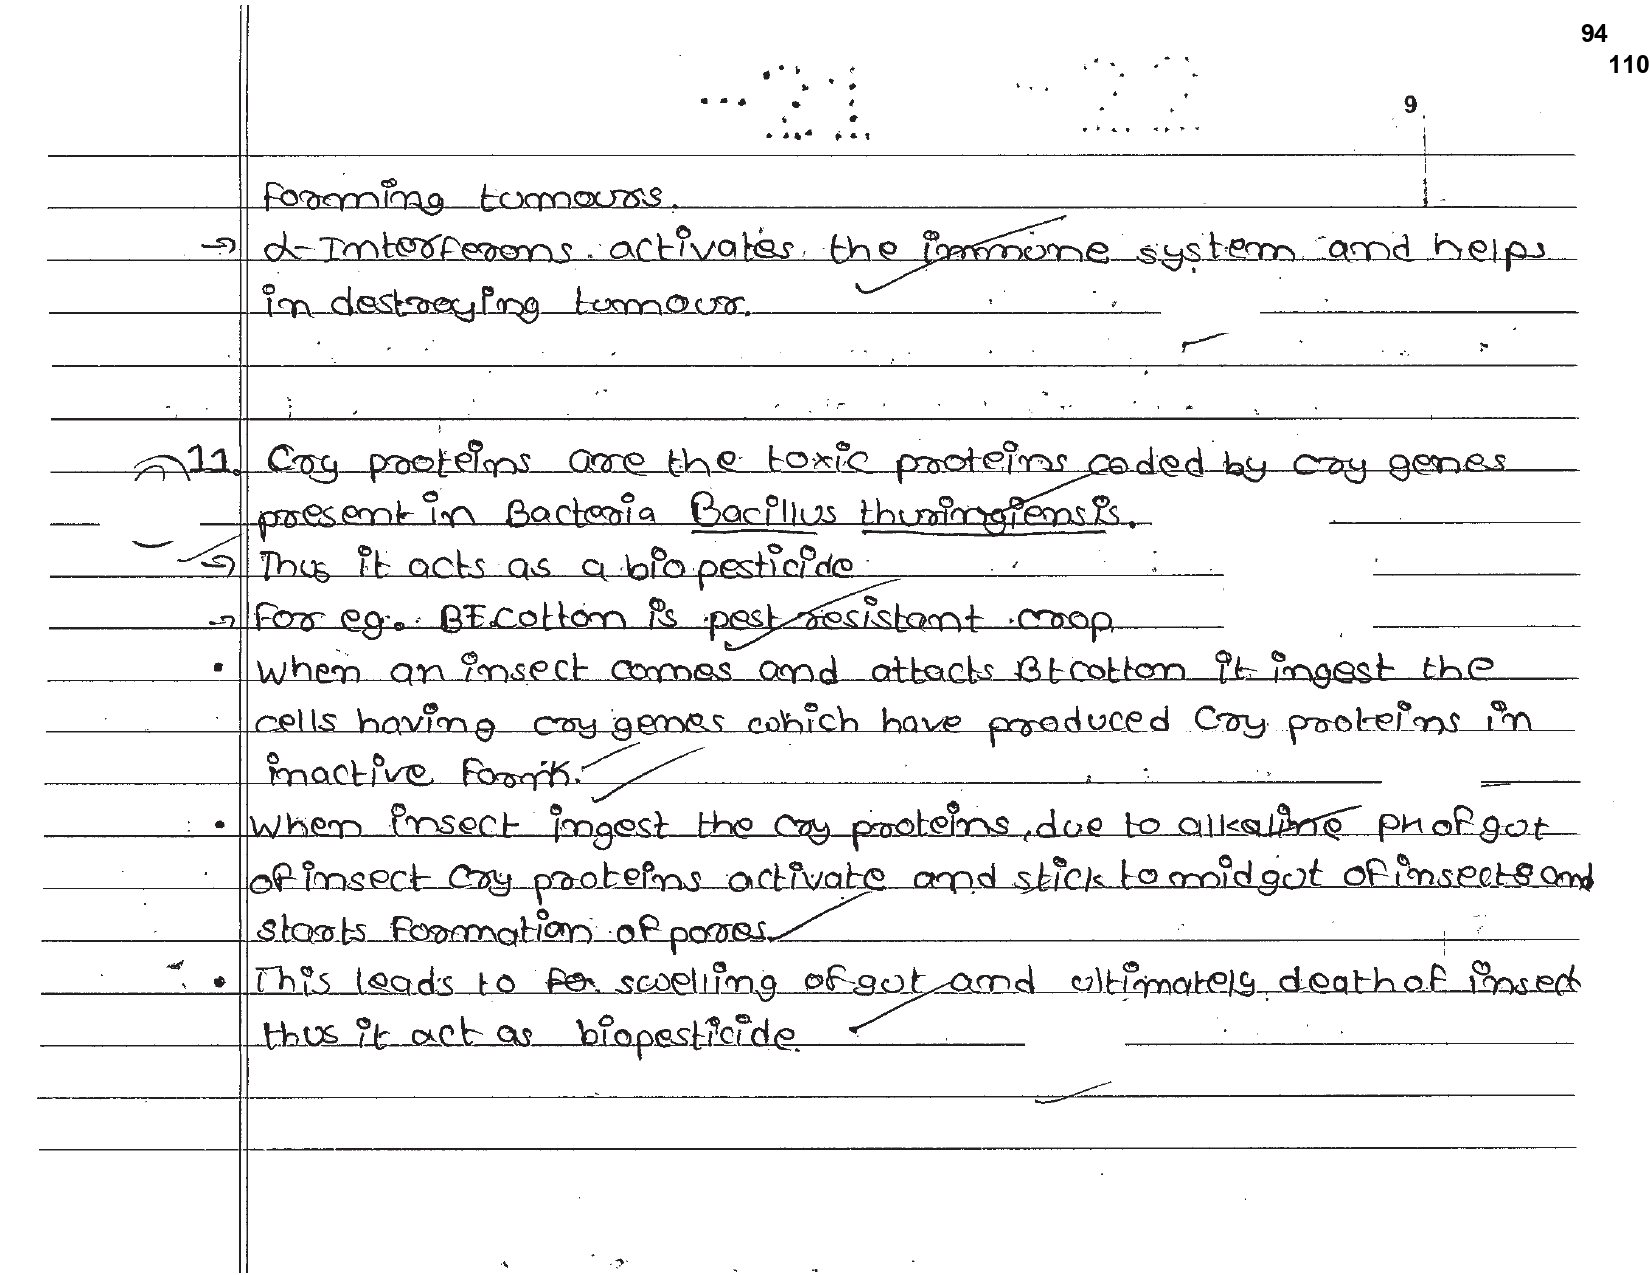 94
110
-21 -22
9
forming tumours.
→ α-Interferons activates the immune system and helps
in destroying tumour.
11. Cry proteins are the toxic proteins coded by cry genes
present in Bacteria Bacillus thuringiensis.
→ Thus it acts as a biopesticide
→ For eg. Bt Cotton is pest resistant crop
• When an insect comes and attacks Bt cotton it ingest the
cells having cry genes which have produced Cry proteins in
inactive form.
• When insect ingest the cry proteins, due to alkaline pH of gut
of insect Cry proteins activate and stick to midgut of insects and
starts formation of pores.
• This leads to swelling of gut and ultimately death of insect
thus it act as biopesticide.